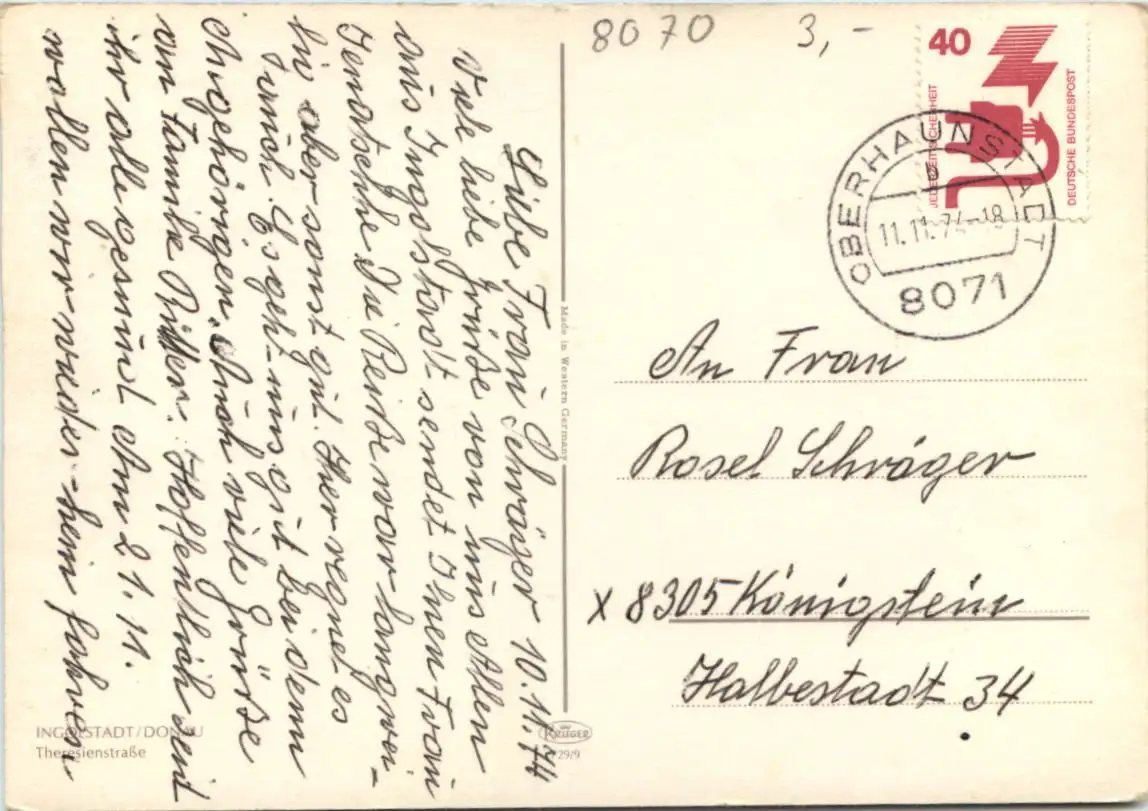 8070
3,-
40
JEDERZEIT SICHERHEIT
DEUTSCHE BUNDESPOST
OBERHAUNSTADT
b
11.11.74-18
8071
Liebe Frau Schräger 10.11.74
Viele liebe Grüße von uns Allen
aus Ingolstadt sendet Ihnen Frau
Jenatschke Die Reise war langwei-
lig aber sonst gut. Hier regnet es
auch. Es geht uns gut bei den
Angehörigen. Auch viele Grüße
an Familie Hoffentlich seit
ihr alle gesund Am 21.11.
wollen wir wieder heim fahren.
Made in Western Germany
An Frau
Rosel Schräger
x 8305 Königstein
Halbestadt 34
INGOLSTADT/DONAU
Theresienstraße
KRÜGER
29/9